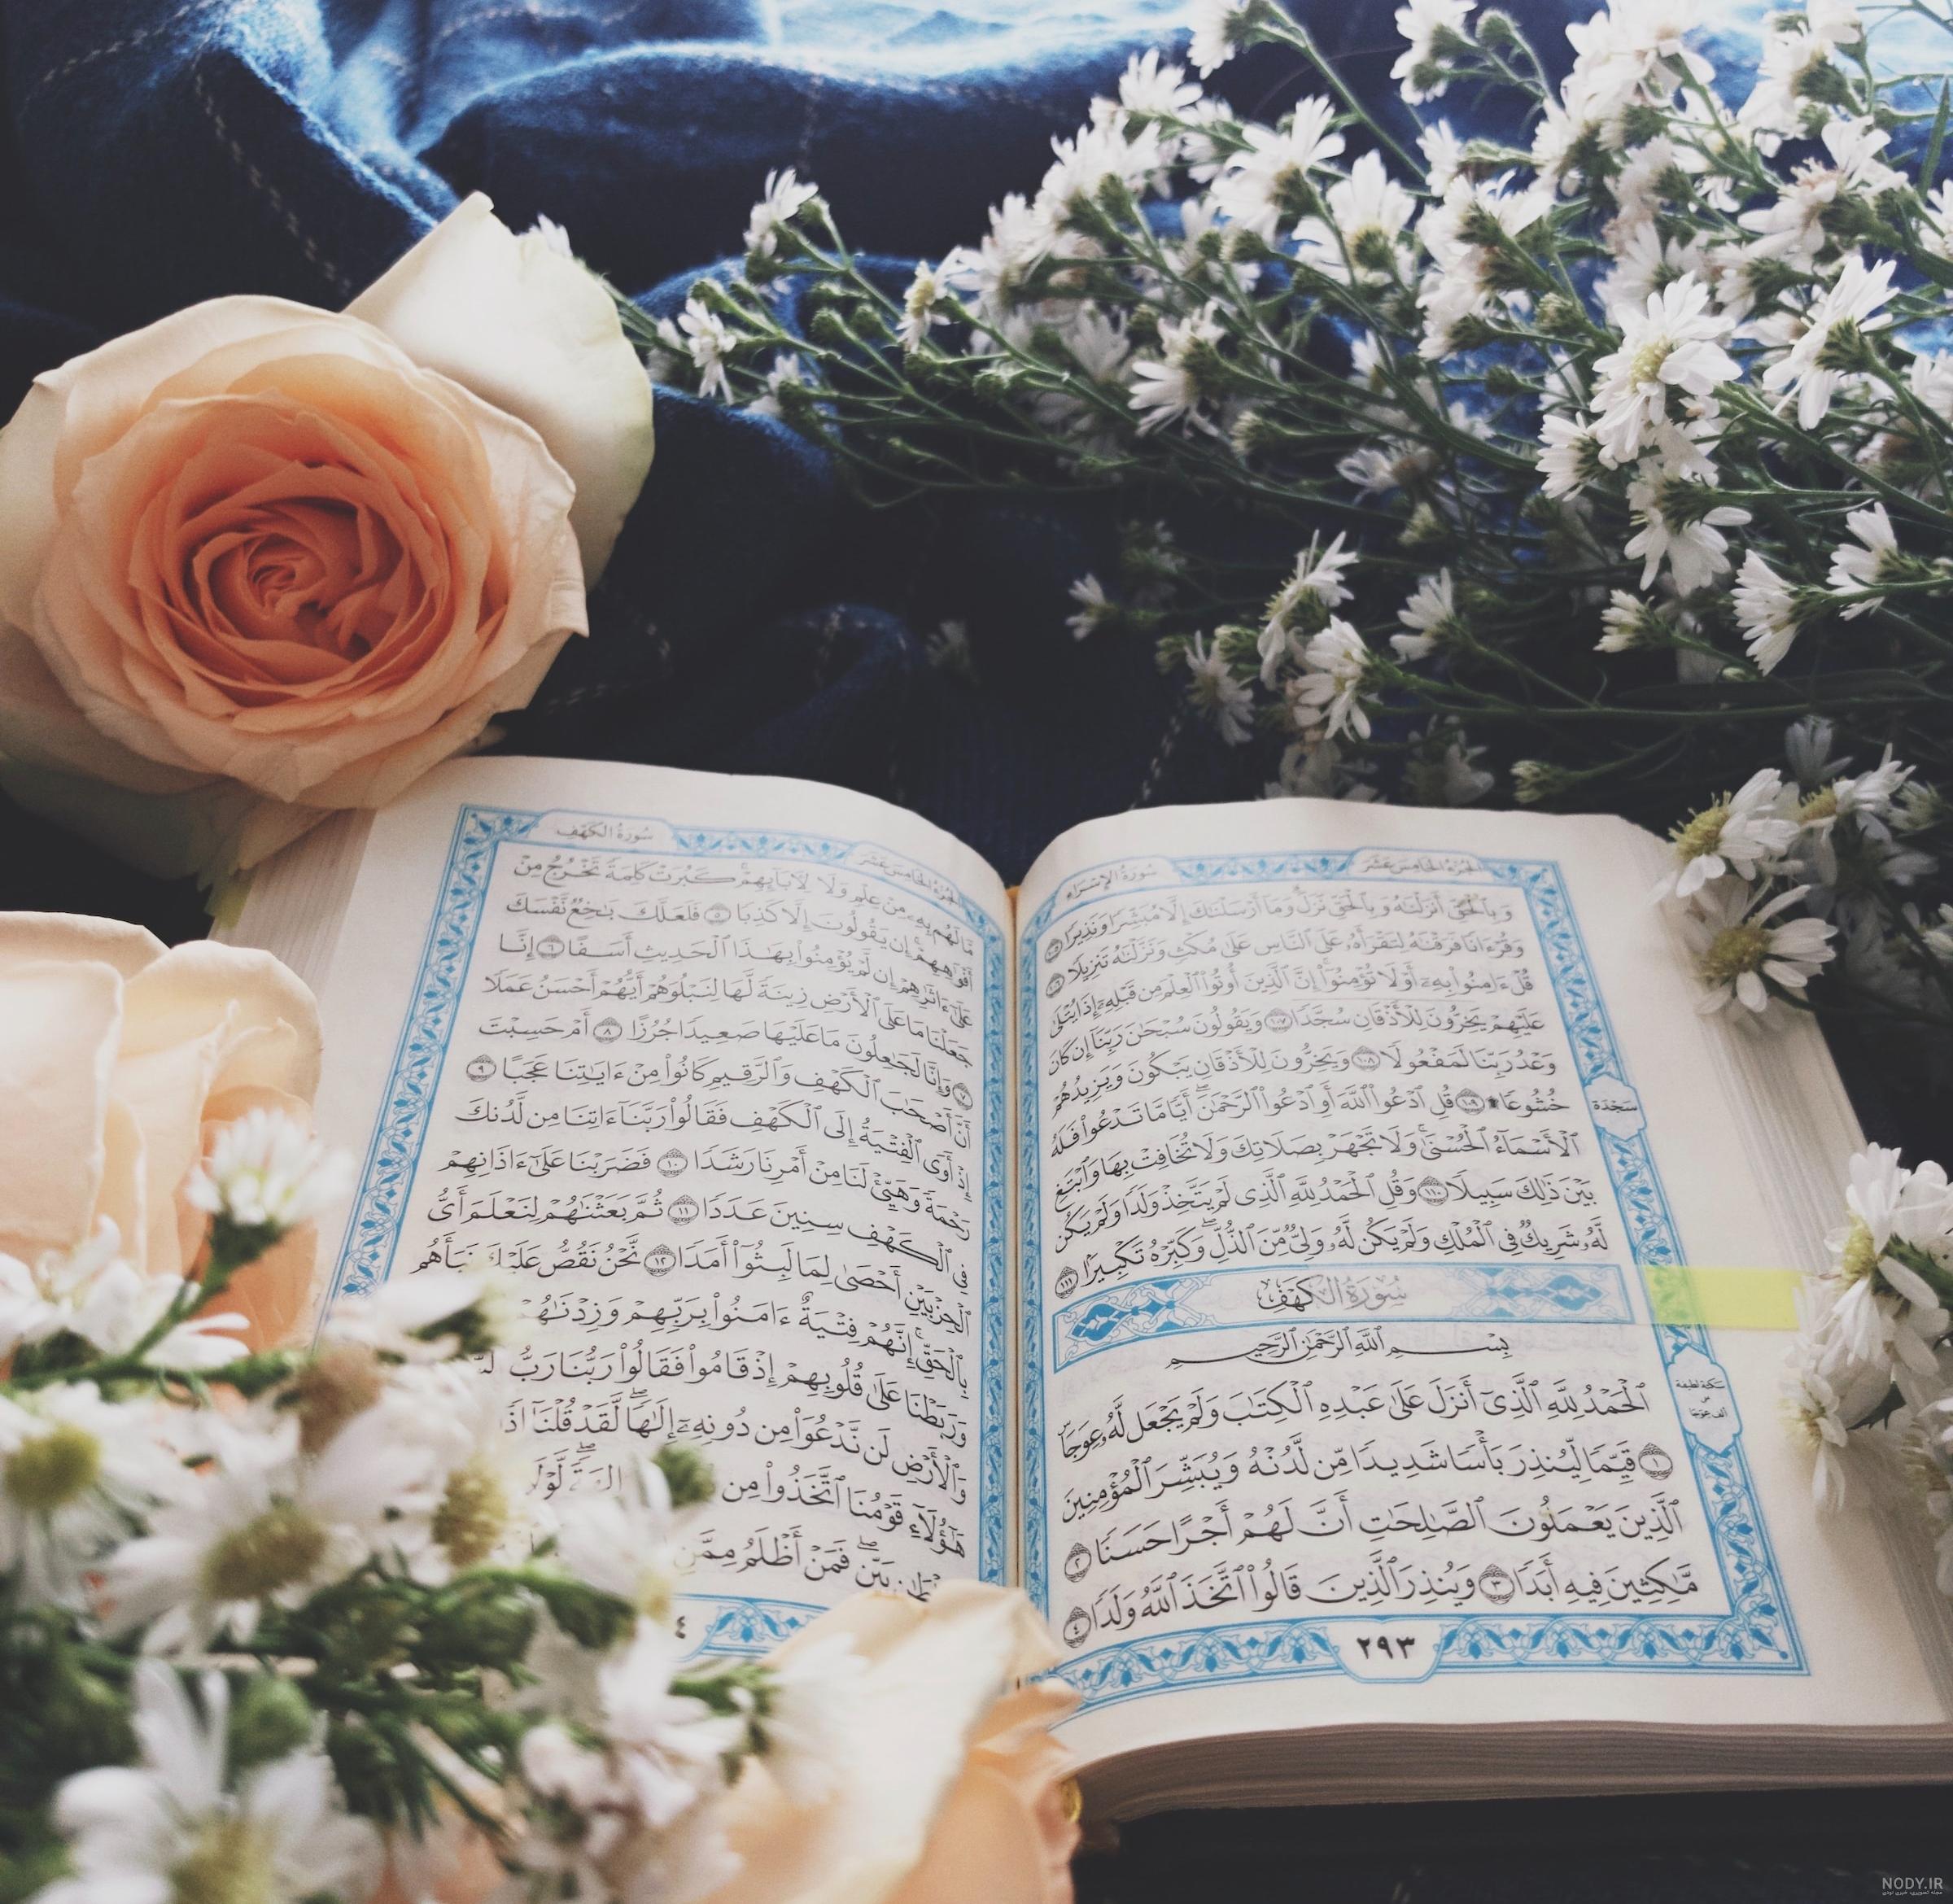 الجزء الخامس عشر
سورة الإسراء
وَبِٱلۡحَقِّ أَنزَلۡنَٰهُ وَبِٱلۡحَقِّ نَزَلَۗ وَمَآ أَرۡسَلۡنَٰكَ إِلَّا مُبَشِّرٗا وَنَذِيرٗا ١٠٥
وَقُرۡءَانٗا فَرَقۡنَٰهُ لِتَقۡرَأَهُۥ عَلَى ٱلنَّاسِ عَلَىٰ مُكۡثٖ وَنَزَّلۡنَٰهُ تَنزِيلٗا ١٠٦
قُلۡ ءَامِنُواْ بِهِۦٓ أَوۡ لَا تُؤۡمِنُوٓاْۚ إِنَّ ٱلَّذِينَ أُوتُواْ ٱلۡعِلۡمَ مِن قَبۡلِهِۦٓ إِذَا يُتۡلَىٰ
عَلَيۡهِمۡ يَخِرُّونَ لِلۡأَذۡقَانِۤ سُجَّدٗا ١٠٧ وَيَقُولُونَ سُبۡحَٰنَ رَبِّنَآ إِن كَانَ
وَعۡدُ رَبِّنَا لَمَفۡعُولٗا ١٠٨ وَيَخِرُّونَ لِلۡأَذۡقَانِ يَبۡكُونَ وَيَزِيدُهُمۡ
خُشُوعٗا۩ ١٠٩ قُلِ ٱدۡعُواْ ٱللَّهَ أَوِ ٱدۡعُواْ ٱلرَّحۡمَٰنَۖ أَيّٗا مَّا تَدۡعُواْ فَلَهُ
سَجْدَة
ٱلۡأَسۡمَآءُ ٱلۡحُسۡنَىٰۚ وَلَا تَجۡهَرۡ بِصَلَاتِكَ وَلَا تُخَافِتۡ بِهَا وَٱبۡتَغِ
بَيۡنَ ذَٰلِكَ سَبِيلٗا ١١٠ وَقُلِ ٱلۡحَمۡدُ لِلَّهِ ٱلَّذِي لَمۡ يَتَّخِذۡ وَلَدٗا وَلَمۡ يَكُن
لَّهُۥ شَرِيكٞ فِي ٱلۡمُلۡكِ وَلَمۡ يَكُن لَّهُۥ وَلِيّٞ مِّنَ ٱلذُّلِّۖ وَكَبِّرۡهُ تَكۡبِيرَۢا ١١١
سُورَةُ الكَهْفِ
بِسۡمِ ٱللَّهِ ٱلرَّحۡمَٰنِ ٱلرَّحِيمِ
ٱلۡحَمۡدُ لِلَّهِ ٱلَّذِيٓ أَنزَلَ عَلَىٰ عَبۡدِهِ ٱلۡكِتَٰبَ وَلَمۡ يَجۡعَل لَّهُۥ عِوَجَاۜ
سكتة لطيفة على ألف عوجا
١ قَيِّمٗا لِّيُنذِرَ بَأۡسٗا شَدِيدٗا مِّن لَّدُنۡهُ وَيُبَشِّرَ ٱلۡمُؤۡمِنِينَ
ٱلَّذِينَ يَعۡمَلُونَ ٱلصَّٰلِحَٰتِ أَنَّ لَهُمۡ أَجۡرًا حَسَنٗا ٢
مَّٰكِثِينَ فِيهِ أَبَدٗا ٣ وَيُنذِرَ ٱلَّذِينَ قَالُواْ ٱتَّخَذَ ٱللَّهُ وَلَدٗا ٤
٢٩٣
الجزء الخامس عشر
سورة الكهف
مَّا لَهُم بِهِۦ مِنۡ عِلۡمٖ وَلَا لِأٓبَآئِهِمۡۚ كَبُرَتۡ كَلِمَةٗ تَخۡرُجُ مِنۡ
أَفۡوَٰهِهِمۡۚ إِن يَقُولُونَ إِلَّا كَذِبٗا ٥ فَلَعَلَّكَ بَٰخِعٞ نَّفۡسَكَ
عَلَىٰٓ ءَاثَٰرِهِمۡ إِن لَّمۡ يُؤۡمِنُواْ بِهَٰذَا ٱلۡحَدِيثِ أَسَفًا ٦ إِنَّا
جَعَلۡنَا مَا عَلَى ٱلۡأَرۡضِ زِينَةٗ لَّهَا لِنَبۡلُوَهُمۡ أَيُّهُمۡ أَحۡسَنُ عَمَلٗا
٧ وَإِنَّا لَجَٰعِلُونَ مَا عَلَيۡهَا صَعِيدٗا جُرُزًا ٨ أَمۡ حَسِبۡتَ
أَنَّ أَصۡحَٰبَ ٱلۡكَهۡفِ وَٱلرَّقِيمِ كَانُواْ مِنۡ ءَايَٰتِنَا عَجَبًا ٩
إِذۡ أَوَى ٱلۡفِتۡيَةُ إِلَى ٱلۡكَهۡفِ فَقَالُواْ رَبَّنَآ ءَاتِنَا مِن لَّدُنكَ
رَحۡمَةٗ وَهَيِّئۡ لَنَا مِنۡ أَمۡرِنَا رَشَدٗا ١٠ فَضَرَبۡنَا عَلَىٰٓ ءَاذَانِهِمۡ
فِي ٱلۡكَهۡفِ سِنِينَ عَدَدٗا ١١ ثُمَّ بَعَثۡنَٰهُمۡ لِنَعۡلَمَ أَيُّ
ٱلۡحِزۡبَيۡنِ أَحۡصَىٰ لِمَا لَبِثُوٓاْ أَمَدٗا ١٢ نَّحۡنُ نَقُصُّ عَلَيۡكَ نَبَأَهُم
بِٱلۡحَقِّۚ إِنَّهُمۡ فِتۡيَةٌ ءَامَنُواْ بِرَبِّهِمۡ وَزِدۡنَٰهُمۡ
وَرَبَطۡنَا عَلَىٰ قُلُوبِهِمۡ إِذۡ قَامُواْ فَقَالُواْ رَبُّنَا رَبُّ
وَٱلۡأَرۡضِ لَن نَّدۡعُوَاْ مِن دُونِهِۦٓ إِلَٰهٗاۖ لَّقَدۡ قُلۡنَآ إِذٗا
هَٰٓؤُلَآءِ قَوۡمُنَا ٱتَّخَذُواْ مِن
بَيِّنٖۖ فَمَنۡ أَظۡلَمُ مِمَّنِ
NODY.IR